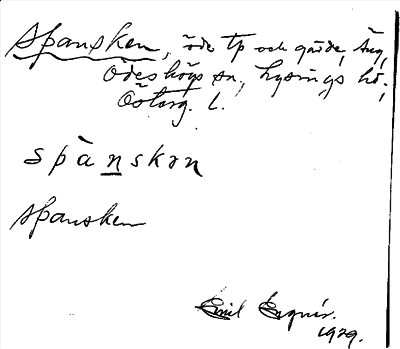 Spansken, öde tp och gärde, Äng,
Ödeshögs sn, Lysings hd,
Österg. l.
spànskən
Spansken
Emil
1929.